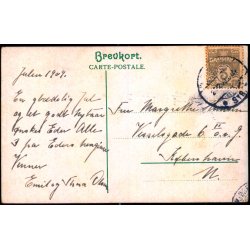 Brevkort.
CARTE-POSTALE.
Julen 1909.
En glædelig Jul
og et godt Nytaar
ønskes Eder Alle
3 fra Eders hengivne
Venner
Emil og Anna
Fru Margrethe
Vesselsgade 6
Kjøbenhavn
N.
DANMARK
3